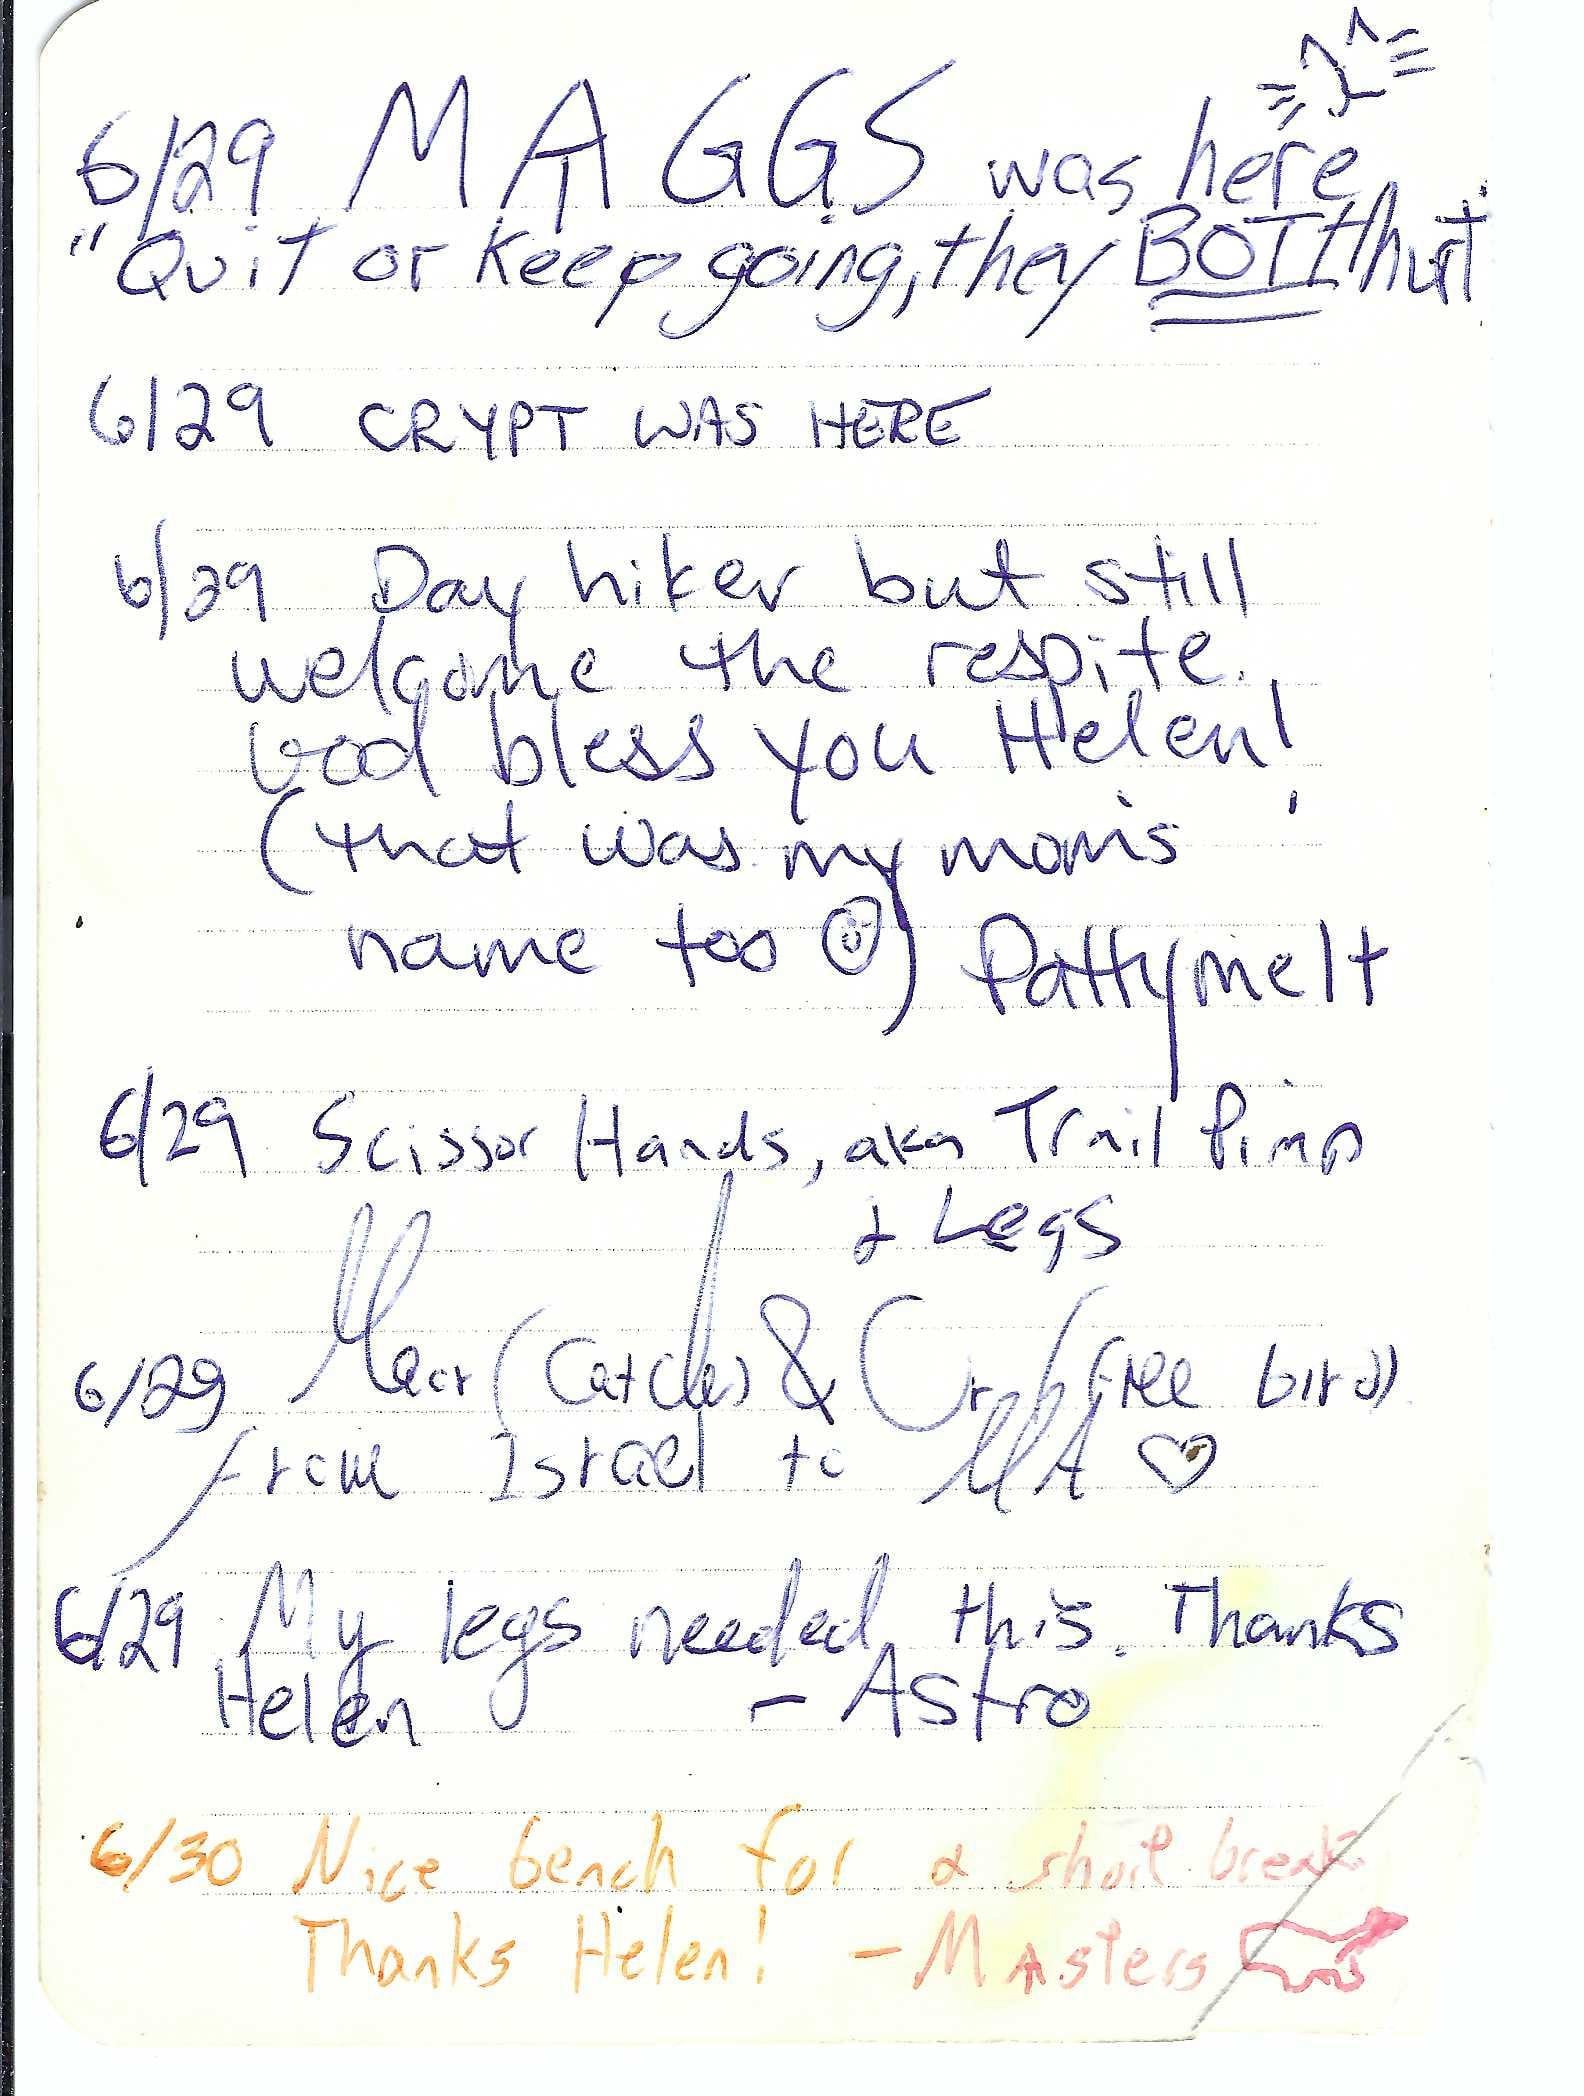 6/29 MAGGS was here
"Quit or keep going, they BOTH hurt
6/29 CRYPT WAS HERE
6/29 Day hiker but still
welcome the respite.
God bless you Helen!
(that was my mom's
name too ☺) Pattymelt
6/29 Scissor Hands, aka Trail Pimp
& Legs
6/29 (Catcher) & (free bird)
from Israel to MA ♡
6/29 My legs needed this. Thanks
Helen - Astro
6/30 Nice bench for a short break
Thanks Helen! - Masters